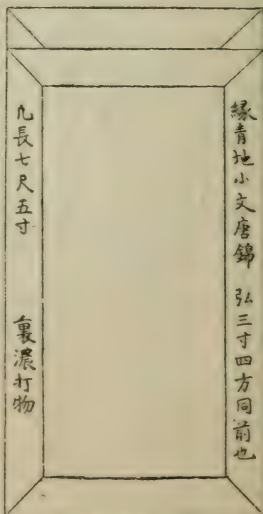 縁青地小文唐錦 弘三寸四方同前也
凡長七尺五寸 裏濃打物